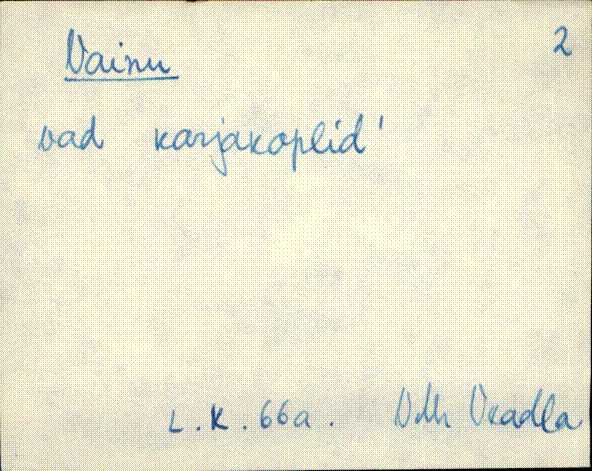 2
Vainu
vad karjakoplid'
L.K. 66a. Vdh Veadla